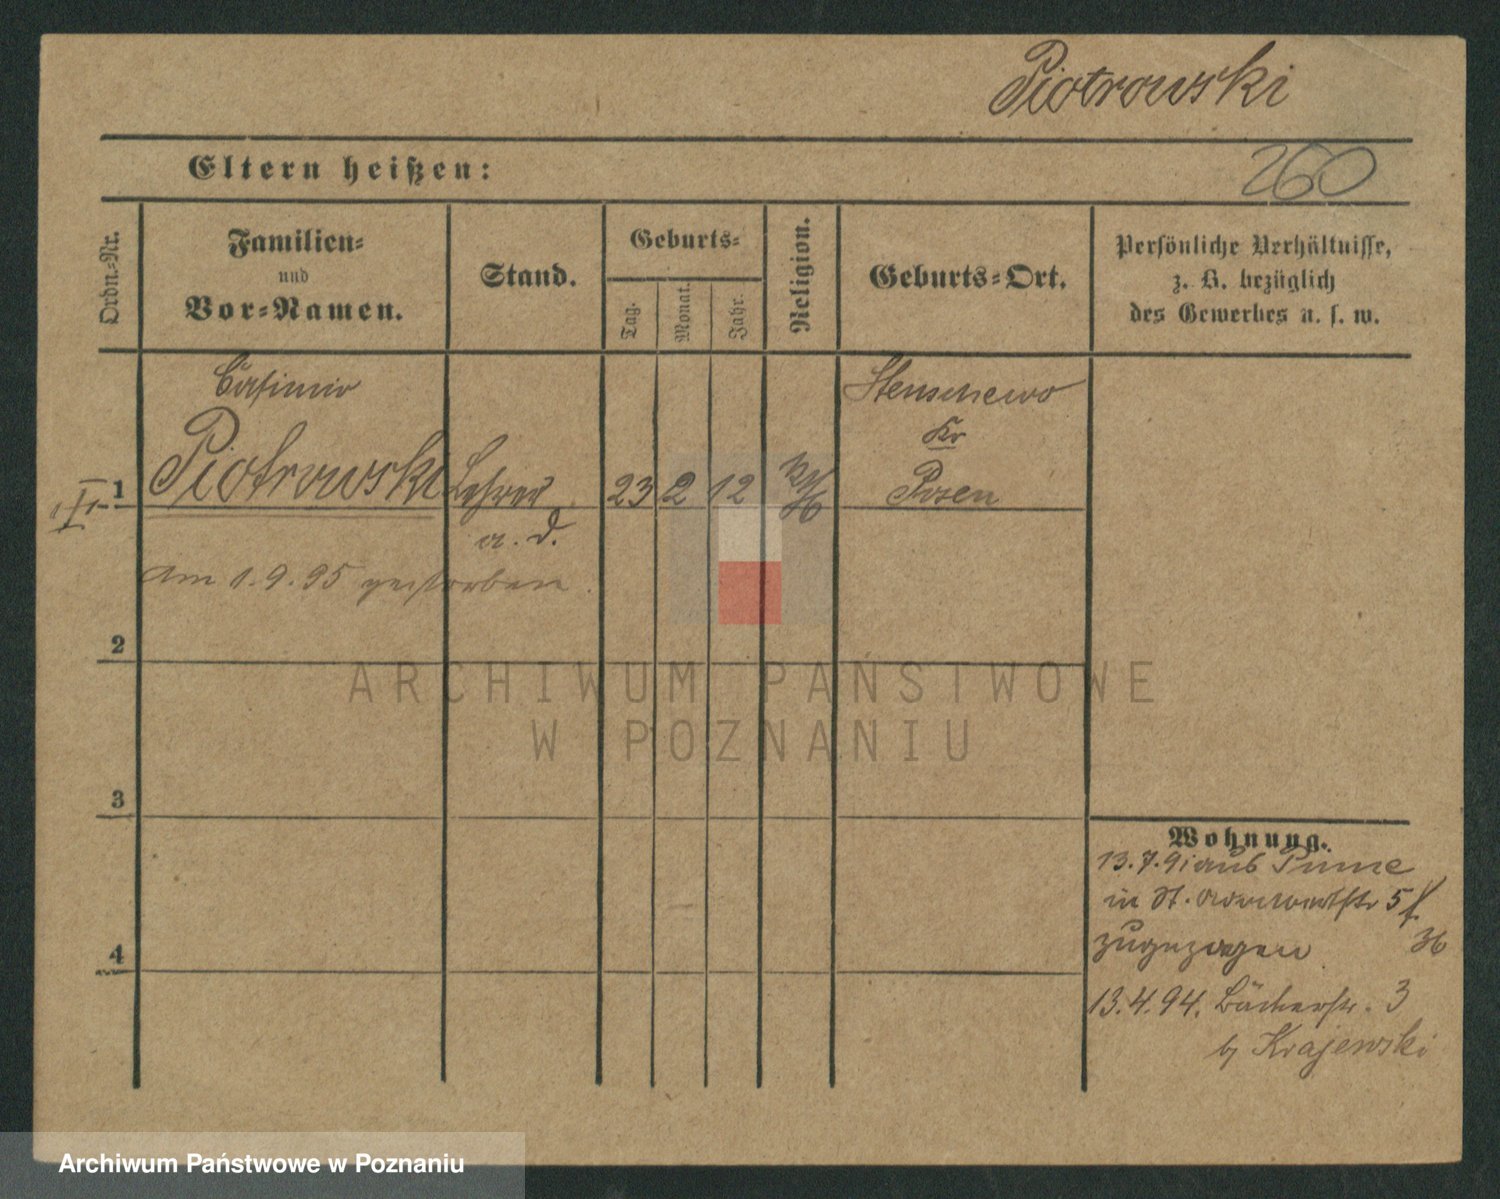 Piotrowski
Eltern heißen:
260
Ordn.-Nr.
Familien-
und
Vor-Namen.
Stand.
Geburts-
Tag.
Monat.
Jahr.
Religion.
Geburts-Ort.
Persönliche Verhältnisse,
z. B. bezüglich
des Gewerbes u. s. w.
Casimir
Stenschewo
Kr
1 Piotrowski Lehrer 23 2 12 Posen
a. D.
am 1.9.95 gestorben.
2
ARCHIWUM PAŃSTWOWE
W POZNANIU
3
Wohnung.
13.7.91 aus Pinne
in St. Adalbertstr 5
zugezogen
36
4
13.4.94. Bäckerstr. 3
b/ Krajewski
Archiwum Państwowe w Poznaniu